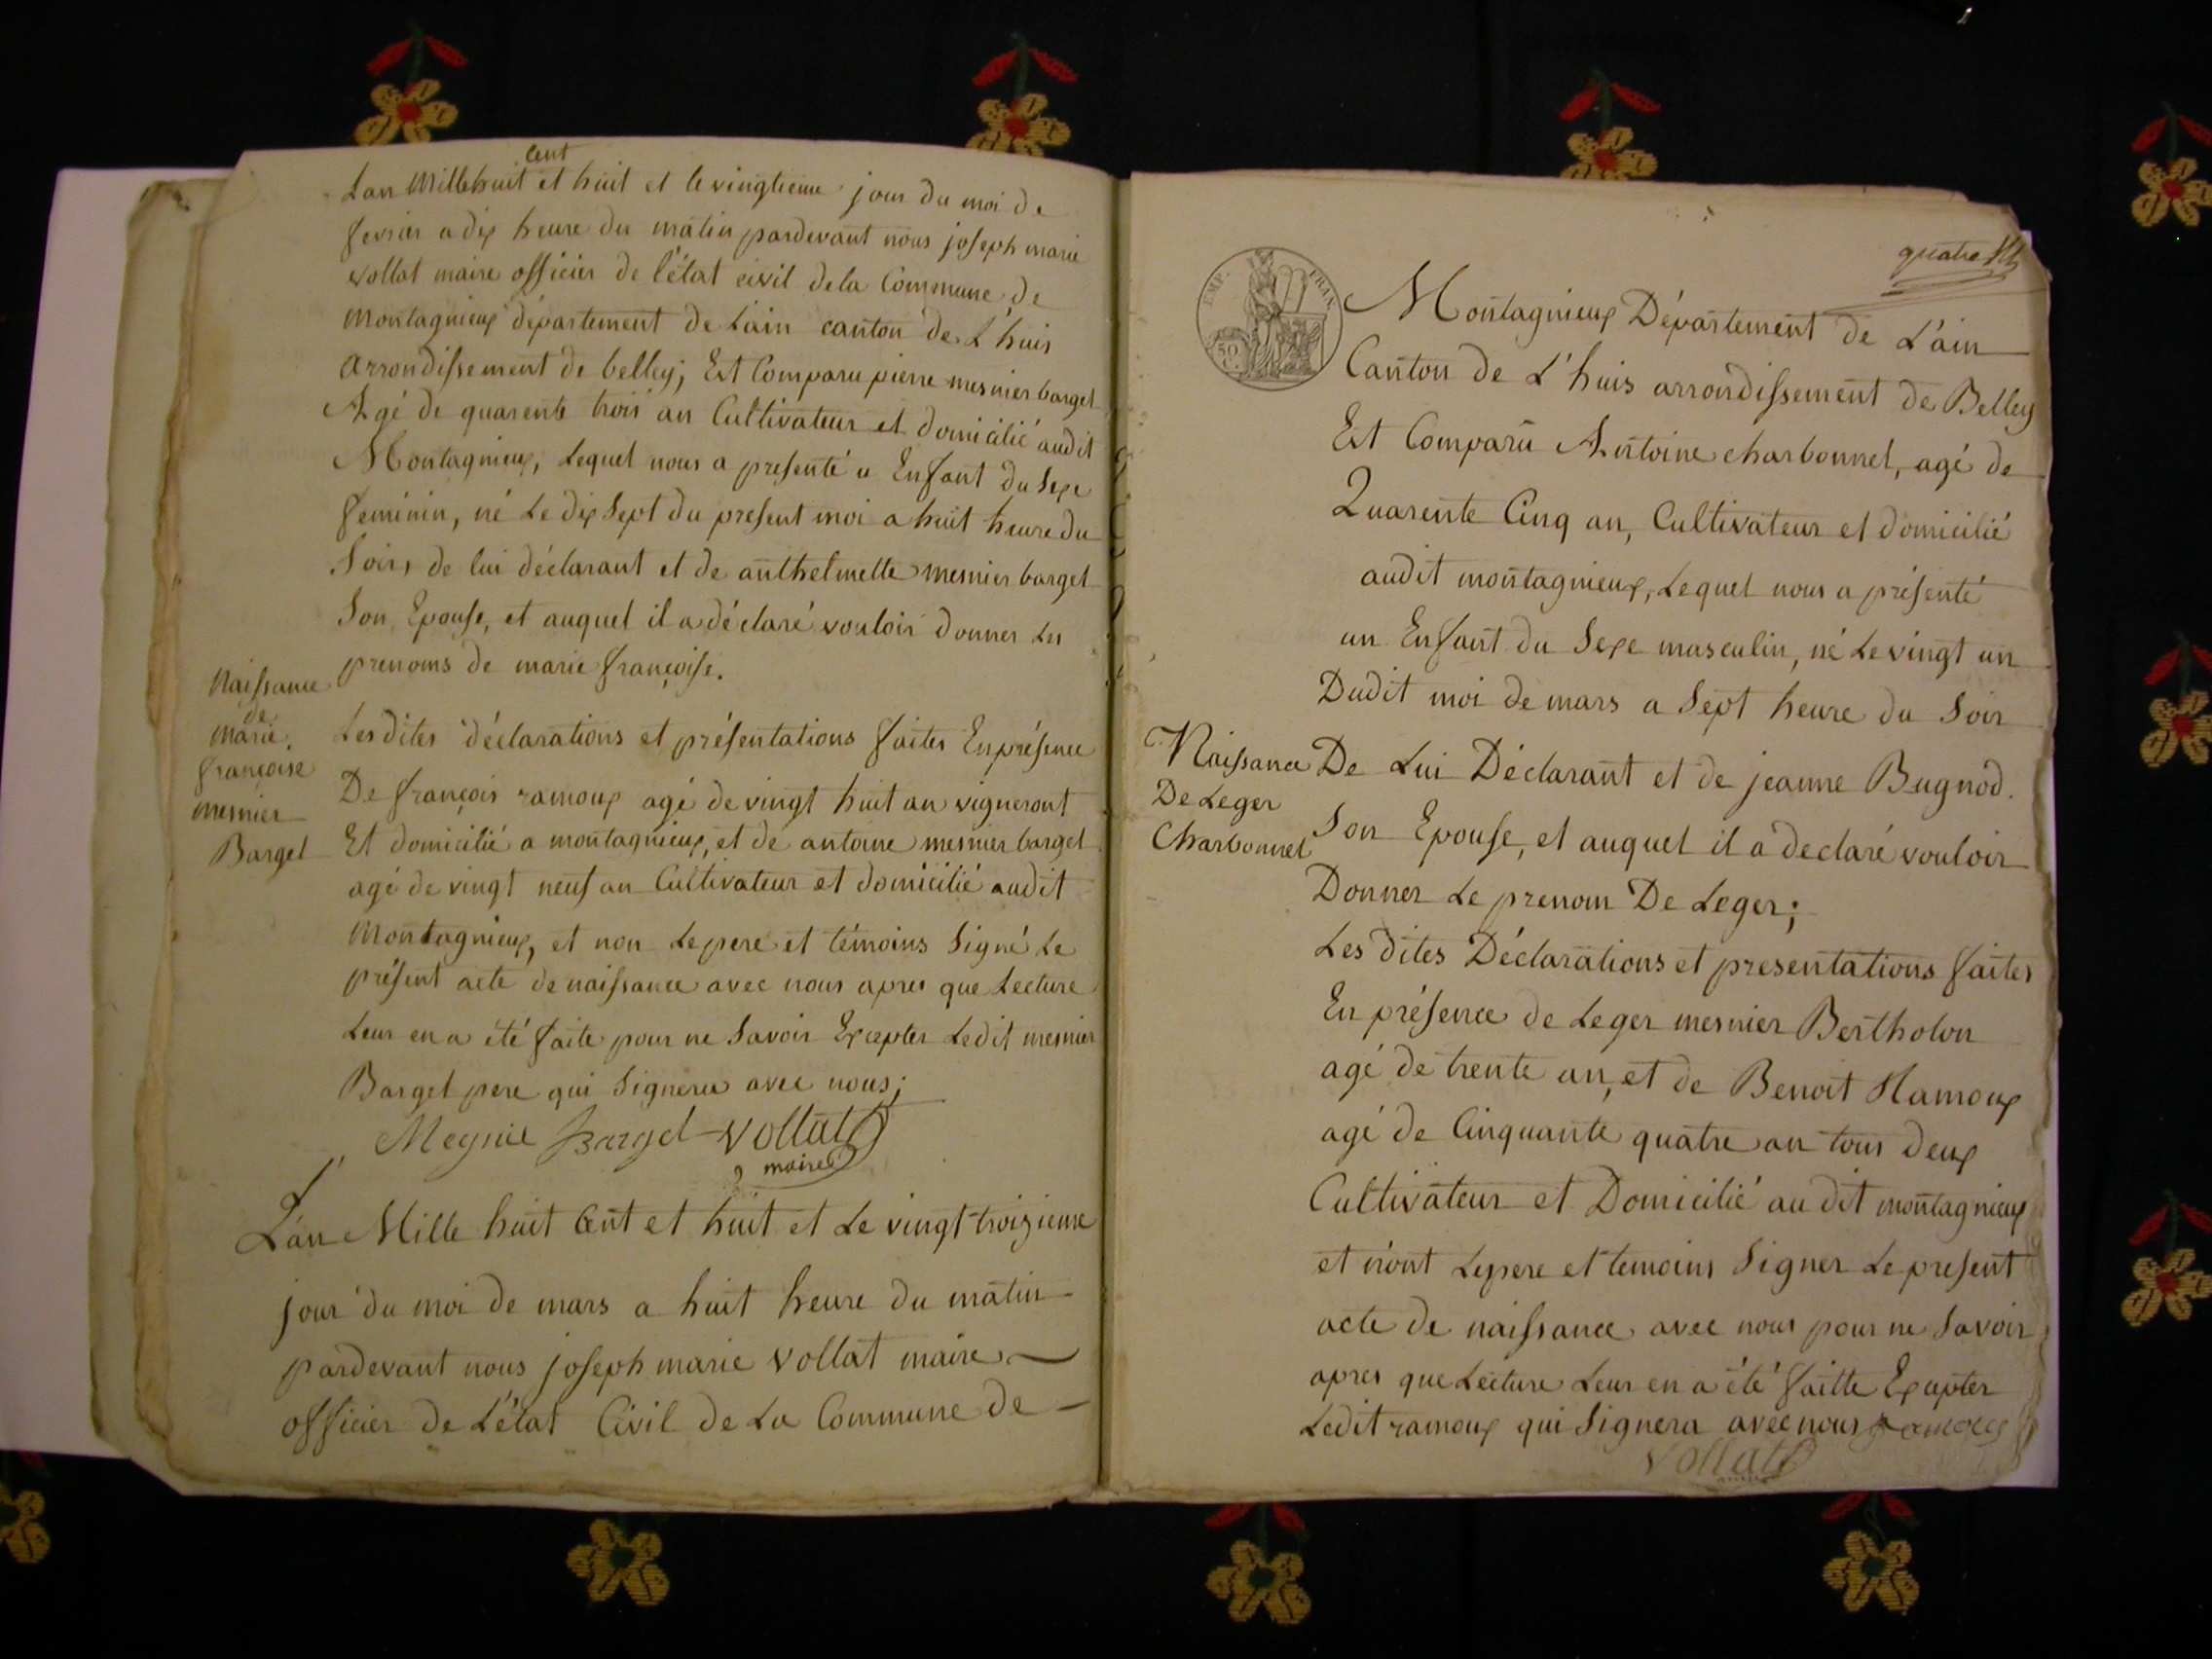 Lan Mille huit cent et huit et le vingtieme jour du moi de
fevrier a dix heure du matin pardevant nous joseph marie
vollat maire officier de l'état civil de la Commune de
Montagnieux département de Lain canton de L'huis
arrondissement de belley; Est Comparu pierre mesnier barget
Agé de quarente trois an Cultivateur et domicilié audit
Montagnieux, Lequel nous a presenté u Enfant du Sexe
feminin, né Le dix Sept du present moi a huit heure du
Soir, de lui déclarant et de anthelmette mesnier barget
Son Epouse, et auquel il a déclaré vouloir donner Les
prenoms de marie françoise.
Naissance
de
marie
françoise
mesnier
Barget
Les dites déclarations et présentations faites En présence
De françois ramoux agé de vingt huit an vigneront
Et domicilié a montagnieux, et de antoine mesnier barget
agé de vingt neuf an Cultivateur et domicilié audit
Montagnieux, et non Le pere et témoins Signé Le
présent acte de naissance avec nous apres que Lecture
Leur en a été faite pour ne Savoir Excepter Ledit mesnier
Barget pere qui Signera avec nous;
Meynie Barget Vollat
maire
L'an Mille huit Cent et huit et Le vingt troizieme
jour du moi de mars a huit heure du matin
pardevant nous joseph marie vollat maire
officier de L'état Civil de La Commune de
quatre
EMP. FRAN.
50
C.
Montagnieux Département de L'ain
Canton de L'huis arrondissement de Belley
Est Comparu Antoine charbonnel, agé de
Quarente Cinq an, Cultivateur et domicilié
audit montagnieux, Lequel nous a présenté
un Enfant du Sexe masculin, né Le vingt un
Dudit moi de mars a Sept heure du Soir
De Lui Déclarant et de jeanne Bugnod.
Son Epouse, et auquel il a declaré vouloir
Donner Le prenom De Leger;
Naissance
De Leger
Charbonnel
Les dites Déclarations et presentations faites
En présence de Leger mesnier Bertholon
agé de trente an, et de Benoit Ramoux
agé de Cinquante quatre an tous deux
Cultivateur et Domicilié au dit montagnieux
et n'ont Le pere et temoins Signer Le present
acte de naissance avec nous pour ne Savoir
apres que Lecture Leur en a été faitte Excepter
Ledit ramoux qui Signera avec nous ramoux
Vollat